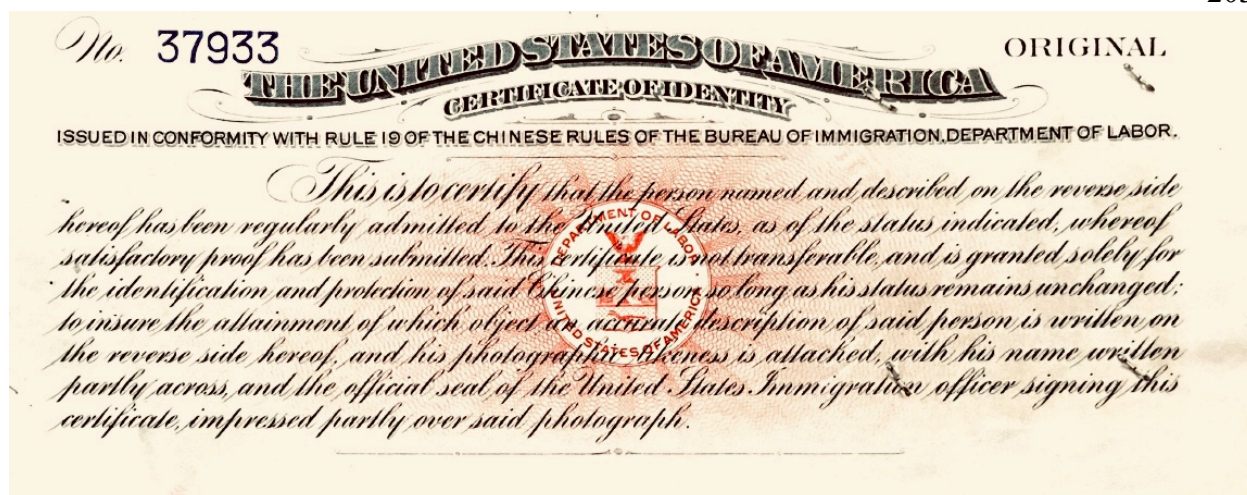 No. 37933
ORIGINAL
THE UNITED STATES OF AMERICA
CERTIFICATE OF IDENTITY
ISSUED IN CONFORMITY WITH RULE 19 OF THE CHINESE RULES OF THE BUREAU OF IMMIGRATION, DEPARTMENT OF LABOR.
This is to certify that the person named and described on the reverse side
hereof has been regularly admitted to the United States, as of the status indicated, whereof
satisfactory proof has been submitted. This certificate is not transferable, and is granted solely for
the identification and protection of said Chinese person so long as his status remains unchanged;
to insure the attainment of which object an accurate description of said person is written on
the reverse side hereof, and his photographic likeness is attached, with his name written
partly across, and the official seal of the United States Immigration officer signing this
certificate, impressed partly over said photograph.
DEPARTMENT OF LABOR
UNITED STATES OF AMERICA